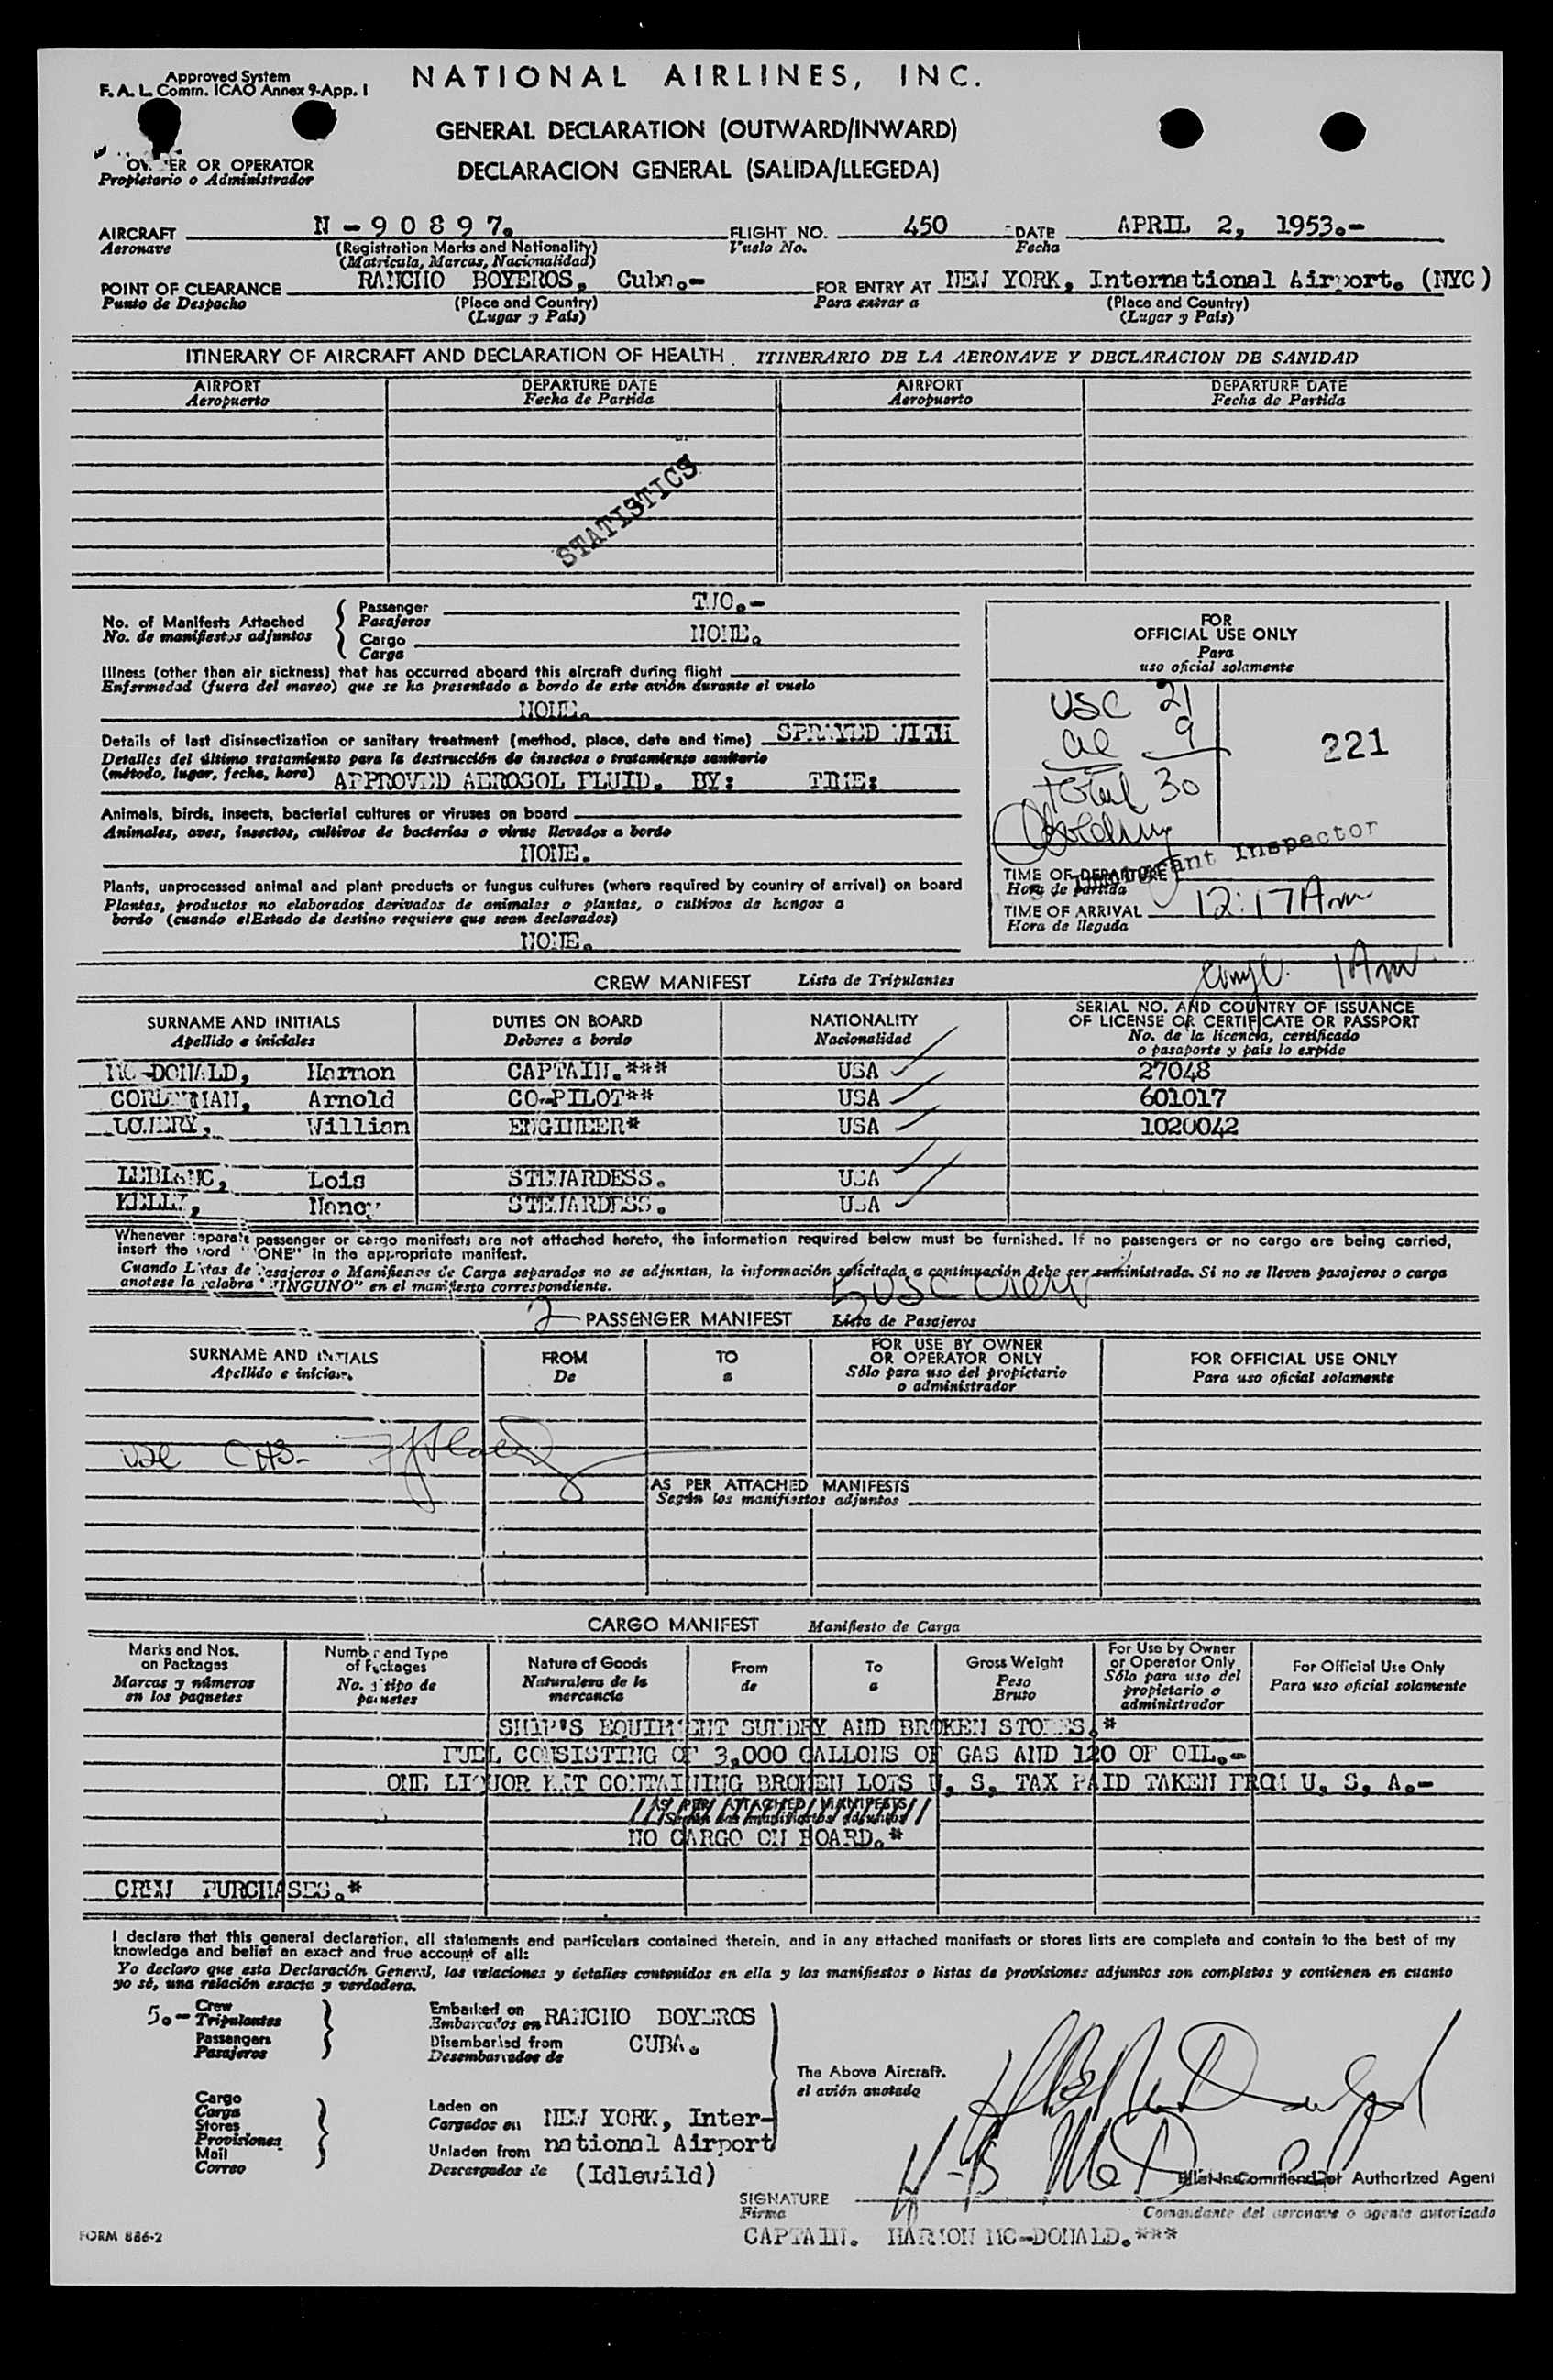 Approved System
F. A. L. Comm. ICAO Annex 9-App. I
NATIONAL AIRLINES, INC.
GENERAL DECLARATION (OUTWARD/INWARD)
DECLARACION GENERAL (SALIDA/LLEGEDA)
OR OPERATOR
Propietario o Administrador
AIRCRAFT N-90897. FLIGHT NO. 450 DATE APRIL 2, 1953.-
Aeronave (Registration Marks and Nationality) Vuelo No. Fecha
(Matricula, Marcas, Nacionalidad)
POINT OF CLEARANCE RANCHO BOYEROS, Cuba.- FOR ENTRY AT NEW YORK, International Airport. (NYC)
Punto de Despacho (Place and Country) Para entrar a (Place and Country)
(Lugar y País) (Lugar y País)
ITINERARY OF AIRCRAFT AND DECLARATION OF HEALTH. ITINERARIO DE LA AERONAVE Y DECLARACION DE SANIDAD
AIRPORT DEPARTURE DATE AIRPORT DEPARTURE DATE
Aeropuerto Fecha de Partida Aeropuerto Fecha de Partida
STATISTICS
No. of Manifests Attached Passenger TWO.-
No. de manifiestos adjuntos Pasajeros
Cargo NONE.
Carga
Illness (other than air sickness) that has occurred aboard this aircraft during flight
Enfermedad (fuera del mareo) que se ha presentado a bordo de este avión durante el vuelo
NONE.
Details of last disinsectization or sanitary treatment (method, place, date and time) SPRAYED WITH
Detalles del último tratamiento para la destrucción de insectos o tratamiento sanitario
(método, lugar, fecha, hora) APPROVED AEROSOL FLUID. BY: TIME:
Animals, birds, insects, bacterial cultures or viruses on board
Animales, aves, insectos, cultivos de bacterias o virus llevados a bordo
NONE.
Plants, unprocessed animal and plant products or fungus cultures (where required by country of arrival) on board
Plantas, productos no elaborados derivados de animales o plantas, o cultivos de hongos a
bordo (cuando elEstado de destino requiere que sean declarados)
NONE.
FOR
OFFICIAL USE ONLY
Para
uso oficial solamente
USC 21
al 9
221
total 30
Immigrant Inspector
TIME OF DEPARTURE
Hora de partida
TIME OF ARRIVAL 12:17 Am
Hora de llegada
1 Am
CREW MANIFEST Lista de Tripulantes
SURNAME AND INITIALS DUTIES ON BOARD NATIONALITY SERIAL NO. AND COUNTRY OF ISSUANCE
OF LICENSE OR CERTIFICATE OR PASSPORT
Apellido e iniciales Deberes a bordo Nacionalidad No. de la licencia, certificado
o pasaporte y país lo expide
MC-DONALD, Harmon CAPTAIN.*** USA 27048
Arnold CO-PILOT** USA 601017
LOWERY, William ENGINEER* USA 1020042
LEBLANC, Lois STEWARDESS. USA
KELLY, Nancy STEWARDESS. USA
Whenever separate passenger or cargo manifests are not attached hereto, the information required below must be furnished. If no passengers or no cargo are being carried,
insert the word "NONE" in the appropriate manifest.
Cuando Listas de Pasajeros o Manifiestos de Carga separados no se adjuntan, la información solicitada a continuación debe ser suministrada. Si no se lleven pasajeros o carga
anotese la palabra "NINGUNO" en el manifiesto correspondiente.
5 USC Crew
2 PASSENGER MANIFEST Lista de Pasajeros
SURNAME AND INITIALS FROM TO FOR USE BY OWNER
OR OPERATOR ONLY FOR OFFICIAL USE ONLY
Apellido e iniciales De a Sólo para uso del propietario
o administrador Para uso oficial solamente
AS PER ATTACHED MANIFESTS
Según los manifiestos adjuntos
CARGO MANIFEST Manifiesto de Carga
Marks and Nos.
on Packages
Marcas y números
en los paquetes
Number and Type
of Packages
No. y tipo de
paquetes
Nature of Goods
Naturaleza de la
mercancia
From
de
To
a
Gross Weight
Peso
Bruto
For Use by Owner
or Operator Only
Sólo para uso del
propietario o
administrador
For Official Use Only
Para uso oficial solamente
SHIP'S EQUIPMENT SUNDRY AND BROKEN STORES.*
FUEL CONSISTING OF 3,000 GALLONS OF GAS AND 120 OF OIL.-
ONE LIQUOR KIT CONTAINING BROKEN LOTS U. S. TAX PAID TAKEN FROM U. S. A.-
AS PER ATTACHED MANIFESTS
Según los manifiestos adjuntos
NO CARGO ON BOARD.*
CREW PURCHASES.*
I declare that this general declaration, all statements and particulars contained therein, and in any attached manifests or stores lists are complete and contain to the best of my
knowledge and belief an exact and true account of all:
Yo declaro que esta Declaración General, las relaciones y detalles contenidos en ella y los manifiestos o listas de provisiones adjuntos son completos y contienen en cuanto
yo sé, una relación exacta y verdadera.
5.- Crew
Tripulantes
Passengers
Pasajeros
Embarked on RANCHO BOYEROS
Embarcados en
Disembarked from CUBA.
Desembarcados de
The Above Aircraft.
el avión anotado
Cargo
Carga
Stores
Provisiones
Mail
Correo
Laden on
Cargados en NEW YORK, Inter-
Unladen from national Airport
Descargados de (Idlewild)
H B McDonald
H-B McD
Pilot-In-Command or Authorized Agent
SIGNATURE
Firma Comandante del aeronave o agente autorizado
CAPTAIN. HARMON MC-DONALD.***
FORM 886-2